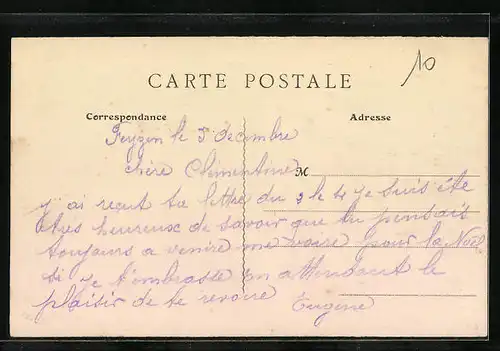 10
CARTE POSTALE
Correspondance
Adresse
Feyzin le 5 decembre
chère Clementine
M
j ai recut ta lettre du 3 le 4 je suis éte
etres heureuse de savoir que tu pensais
toujours a venire me voire pour la Noël
si je t'embrasse en attendant le
plaisir de te revoire
Eugene